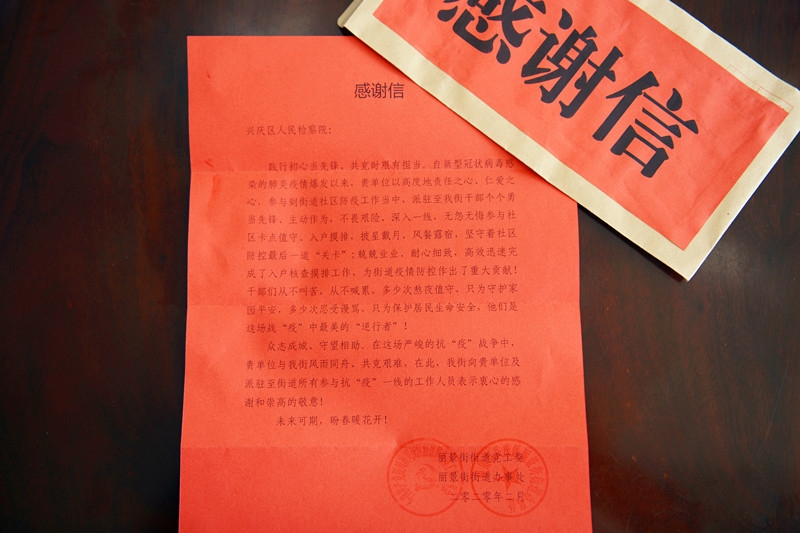 感谢信
感谢信
兴庆区人民检察院：
践行初心当先锋、共克时艰有担当。自新型冠状病毒感
染的肺炎疫情爆发以来，贵单位以高度地责任之心、仁爱之
心，参与到街道社区防疫工作当中，派驻至我街干部个个勇
当先锋、主动作为，不畏艰险，深入一线，无怨无悔参与社
区卡点值守、入户摸排，披星戴月、风餐露宿，坚守着社区
防控最后一道“关卡”；兢兢业业，耐心细致，高效迅速完
成了入户核查摸排工作，为街道疫情防控作出了重大贡献！
干部们从不叫苦、从不喊累，多少次熬夜值守，只为守护家
园平安，多少次忍受谩骂，只为保护居民生命安全，他们是
这场战“疫”中最美的“逆行者”！
众志成城、守望相助。在这场严峻的抗“疫”战争中，
贵单位与我街风雨同舟、共克艰难，在此，我街向贵单位及
派驻至街道所有参与抗“疫”一线的工作人员表示衷心的感
谢和崇高的敬意！
未来可期，盼春暖花开！
丽景街街道党工委
丽景街街道办事处
二零二零年二月